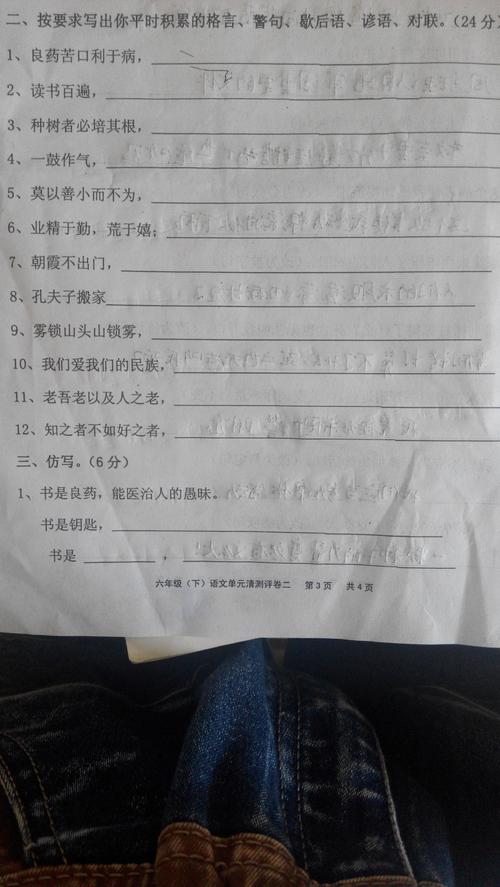 二、按要求写出你平时积累的格言、警句、歇后语、谚语、对联。(24 分)
1、良药苦口利于病，
2、读书百遍，
3、种树者必培其根，
4、一鼓作气，
5、莫以善小而不为，
6、业精于勤，荒于嬉；
7、朝霞不出门，
8、孔夫子搬家
9、雾锁山头山锁雾，
10、我们爱我们的民族，
11、老吾老以及人之老，
12、知之者不如好之者，
三、仿写。(6 分)
1、书是良药，能医治人的愚昧。
书是钥匙，
书是 ，
六年级（下）语文单元清测评卷二 第 3 页 共 4 页